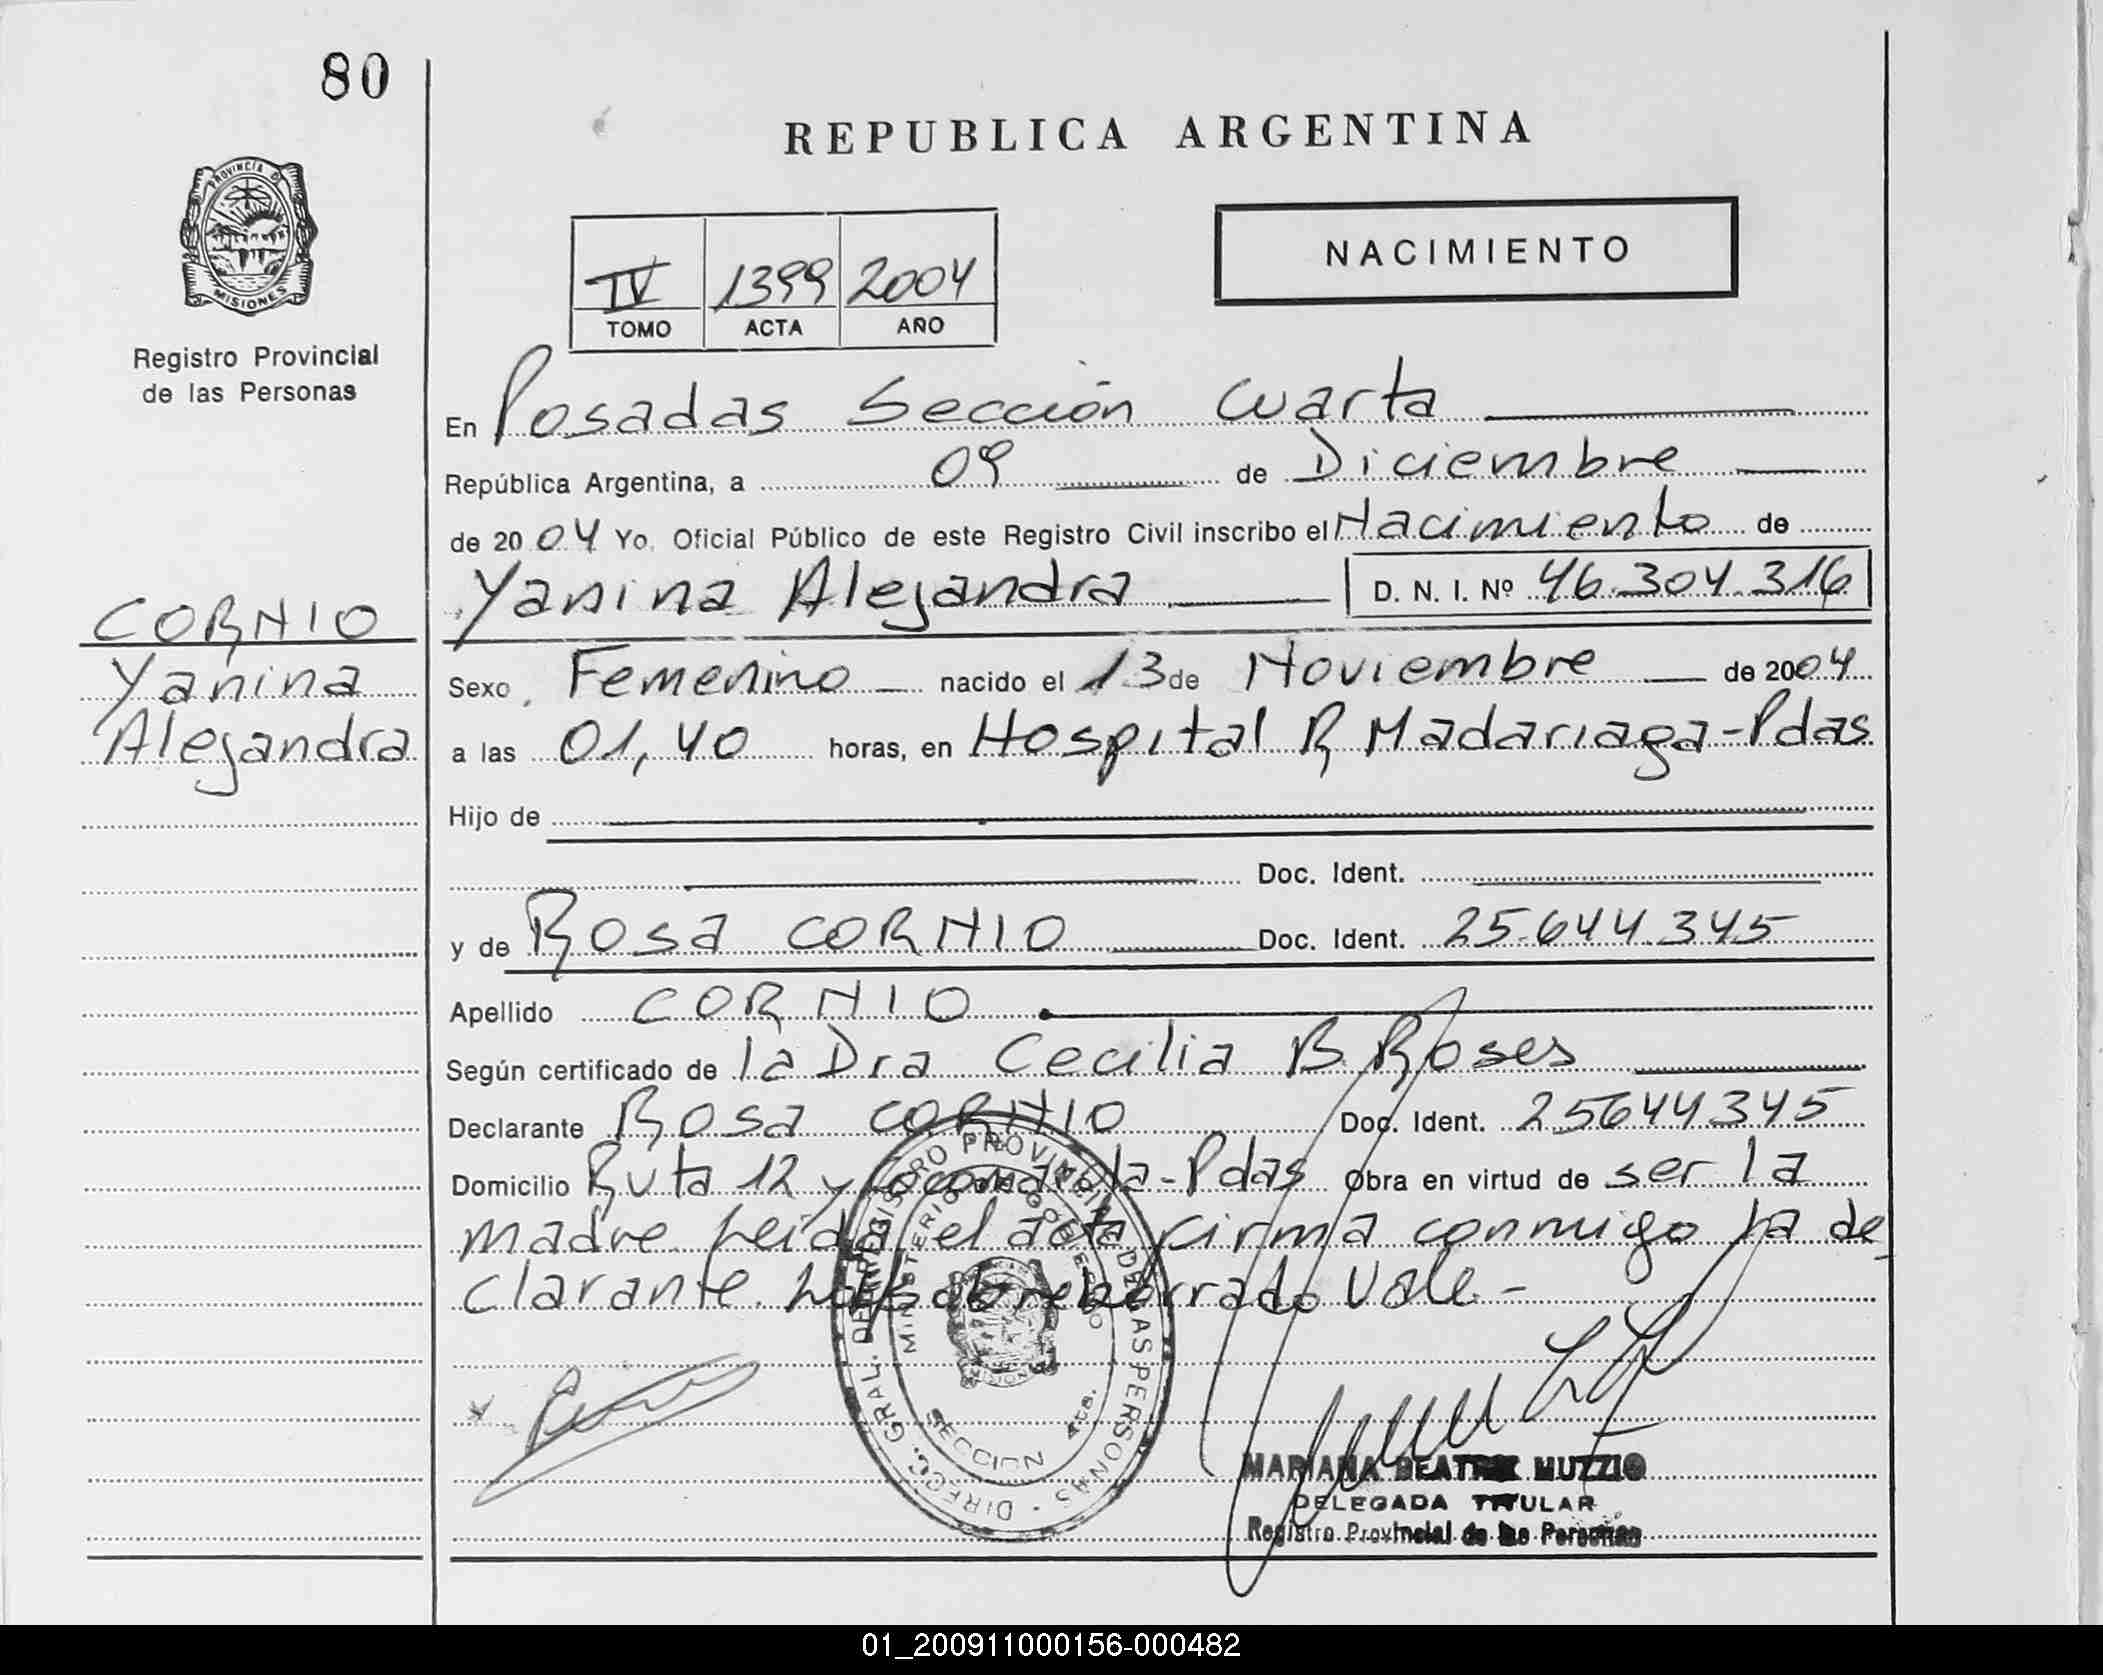 80
REPUBLICA ARGENTINA
PROVINCIA D
MISIONES
NACIMIENTO
IV 1399 2004
TOMO ACTA AÑO
Registro Provincial
de las Personas
En Posadas Sección Cuarta
República Argentina, a 09 de Diciembre
de 2004 Yo, Oficial Público de este Registro Civil inscribo el Nacimiento de
Yanina Alejandra D. N. I. Nº 46.304.316
CORNIO
Yanina
Alejandra
Sexo Femenino nacido el 13 de Noviembre de 2004
a las 01,40 horas, en Hospital R Madariaga-Pdas
Hijo de
Doc. Ident.
y de Rosa CORNIO Doc. Ident. 25.644.345
Apellido CORNIO
Según certificado de la Dra Cecilia B Roses
Declarante Rosa CORNIO Doc. Ident. 25644345
Domicilio Ruta 12 y -Pdas Obra en virtud de ser la
madre. Leida el acta firma conmigo la de
clarante. sobreborrado Vale-
DIRECC. GRAL. DEL REGISTRO PROVINCIAL DE LAS PERSONAS
MINISTERIO DE GOBIERNO
SECCION 4ta.
MARIANA BEATRIZ MUZZIO
DELEGADA TITULAR
Registro Provincial de las Personas
01_200911000156-000482